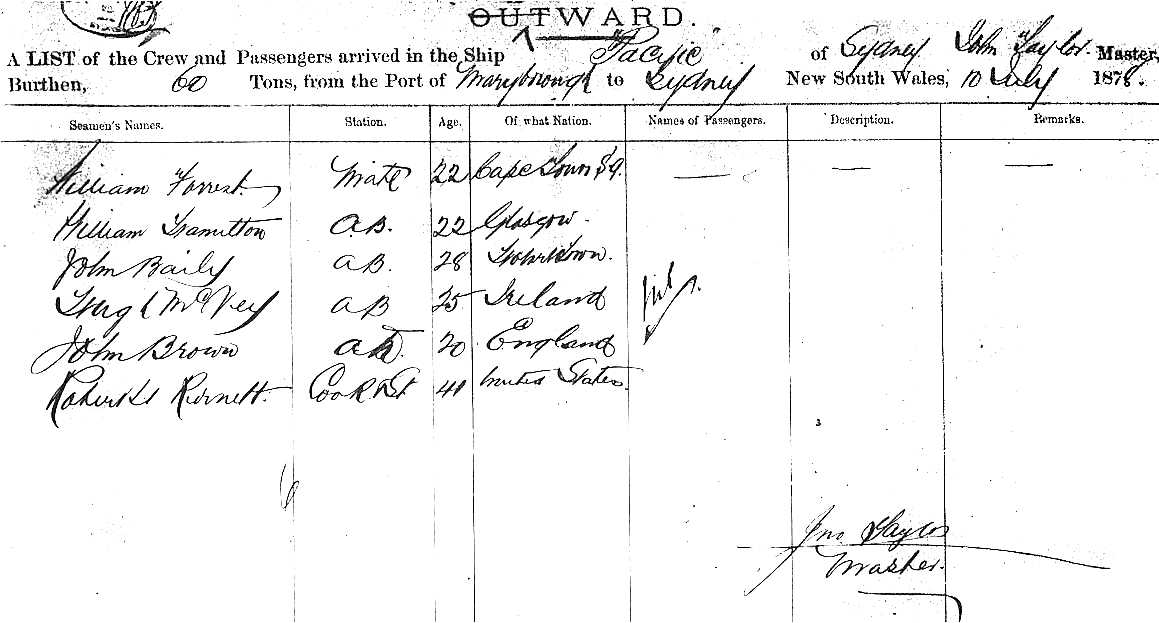 OUTWARD.
A LIST of the Crew and Passengers arrived in the Ship "Pacific" of Sydney John Taylor Master,
Burthen, 60 Tons, from the Port of Maryborough to Sydney New South Wales, 10 July 1878.
Seamen's Names. Station. Age. Of what Nation. Names of Passengers. Description. Remarks.
William Forrest Mate 22 Cape Town — — —
William Hamilton A.B. 22 Glasgow.
John Baily AB. 28 Hobart Town.
Hugh McVey AB 25 Ireland
John Brown 20 England
Robert Burnett Cook & St 41 United States
Jno. Taylor
Master.